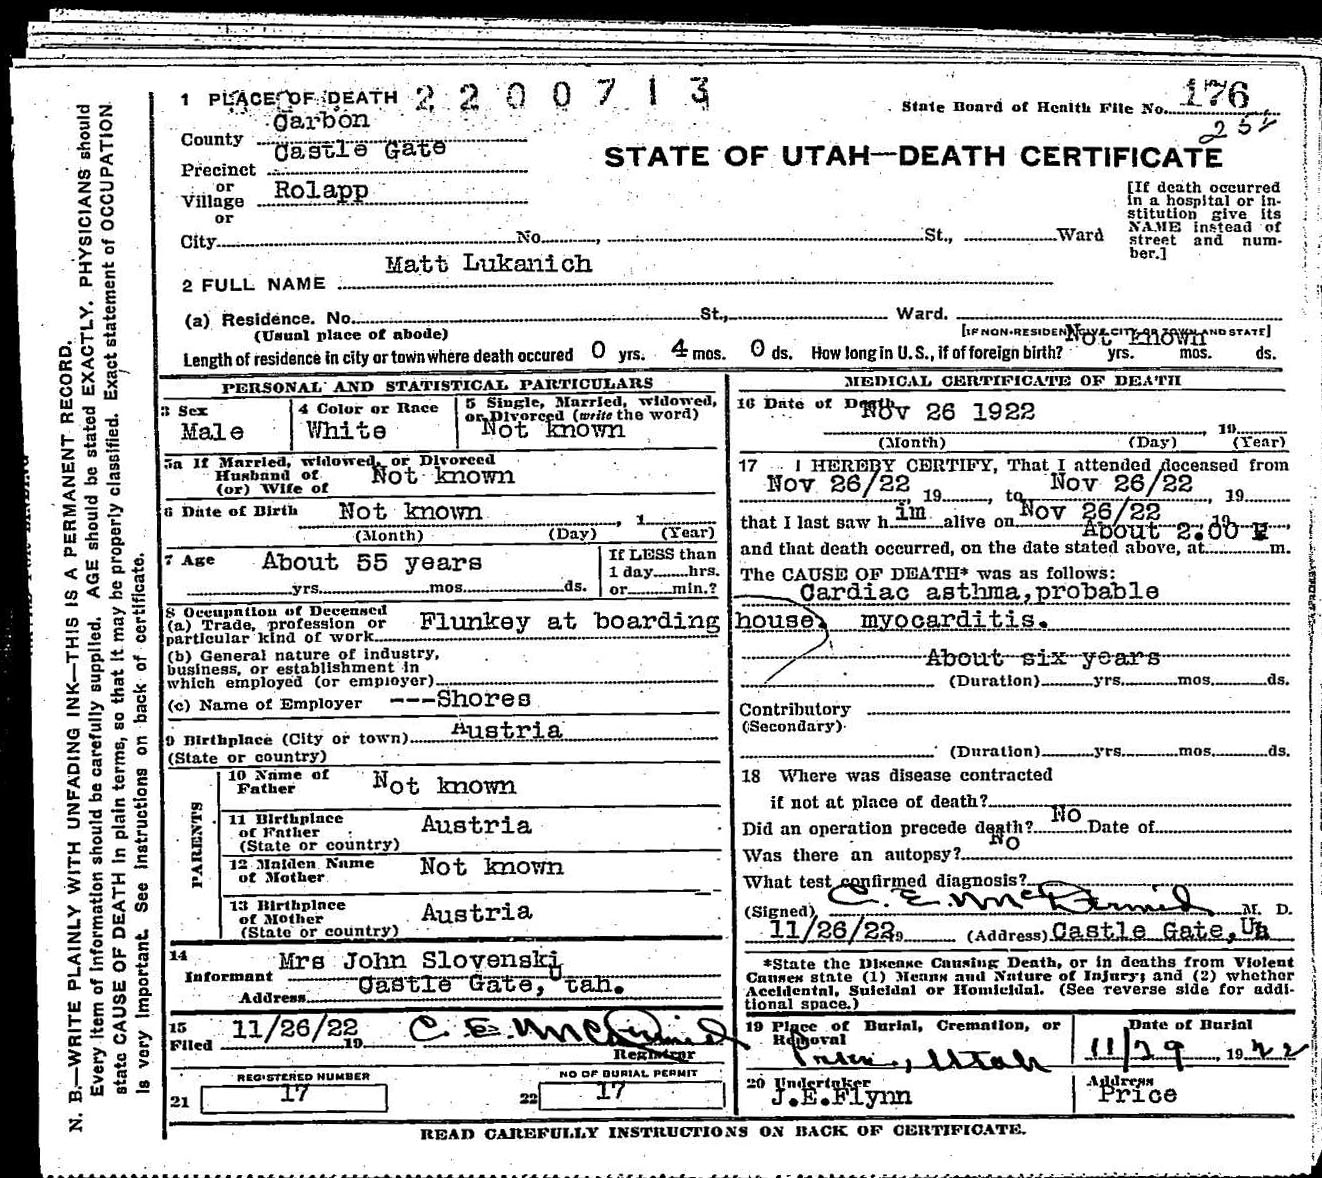 1 PLACE OF DEATH 2200713
State Board of Health File No. 176
252
County Carbon
Precinct Castle Gate
or
Village Rolapp
or
City No. , St., Ward
STATE OF UTAH—DEATH CERTIFICATE
[If death occurred
in a hospital or in-
stitution give its
NAME instead of
street and num-
ber.]
2 FULL NAME Matt Lukanich
(a) Residence. No. St., Ward.
(Usual place of abode)
[IF NON-RESIDENT GIVE CITY OR TOWN AND STATE]
Length of residence in city or town where death occured 0 yrs. 4 mos. 0 ds. How long in U. S., if of foreign birth? Not known yrs. mos. ds.
PERSONAL AND STATISTICAL PARTICULARS
3 Sex
Male
4 Color or Race
White
5 Single, Married, widowed,
or Divorced (write the word)
Not known
5a If Married, widowed, or Divorced
Husband of
(or) Wife of
Not known
6 Date of Birth Not known , 1
(Month) (Day) (Year)
7 Age About 55 years
yrs. mos. ds.
If LESS than
1 day hrs.
or min.?
8 Occupation of Deceased
(a) Trade, profession or
particular kind of work
Flunkey at boarding house,
(b) General nature of industry,
business, or establishment in
which employed (or employer)
(c) Name of Employer ---Shores
9 Birthplace (City or town) Austria
(State or country)
PARENTS
10 Name of
Father
Not known
11 Birthplace
of Father
(State or country)
Austria
12 Maiden Name
of Mother
Not known
13 Birthplace
of Mother
(State or country)
Austria
14
Informant Mrs John Slovenski
Address Castle Gate, Utah.
15
Filed 11/26/22 19 C. E. McDermid
Registrar
REGISTERED NUMBER
21 17
NO OF BURIAL PERMIT
22 17
MEDICAL CERTIFICATE OF DEATH
16 Date of Death
Nov 26 1922
, 19
(Month) (Day) (Year)
17 I HEREBY CERTIFY, That I attended deceased from
Nov 26/22 19 , to Nov 26/22 , 19
that I last saw him alive on Nov 26/22 19 ,
About 2:00 P
and that death occurred, on the date stated above, at m.
The CAUSE OF DEATH* was as follows:
Cardiac asthma, probable
myocarditis.
About six years
(Duration) yrs. mos. ds.
Contributory
(Secondary)
(Duration) yrs. mos. ds.
18 Where was disease contracted
if not at place of death?
Did an operation precede death? No Date of
Was there an autopsy? No
What test confirmed diagnosis?
(Signed) C. E. McDermid M. D.
11/26/22 19 (Address) Castle Gate, Ua
*State the Disease Causing Death, or in deaths from Violent
Causes state (1) Means and Nature of Injury; and (2) whether
Accidental, Suicidal or Homicidal. (See reverse side for addi-
tional space.)
19 Place of Burial, Cremation, or
Removal
Price, Utah
Date of Burial
11/29 , 1922
20 Undertaker
J.E.Flynn
Address
Price
READ CAREFULLY INSTRUCTIONS ON BACK OF CERTIFICATE.
N. B.—WRITE PLAINLY WITH UNFADING INK—THIS IS A PERMANENT RECORD.
Every item of information should be carefully supplied. AGE should be stated EXACTLY. PHYSICIANS should
state CAUSE OF DEATH in plain terms, so that it may be properly classified. Exact statement of OCCUPATION
is very important. See instructions on back of certificate.